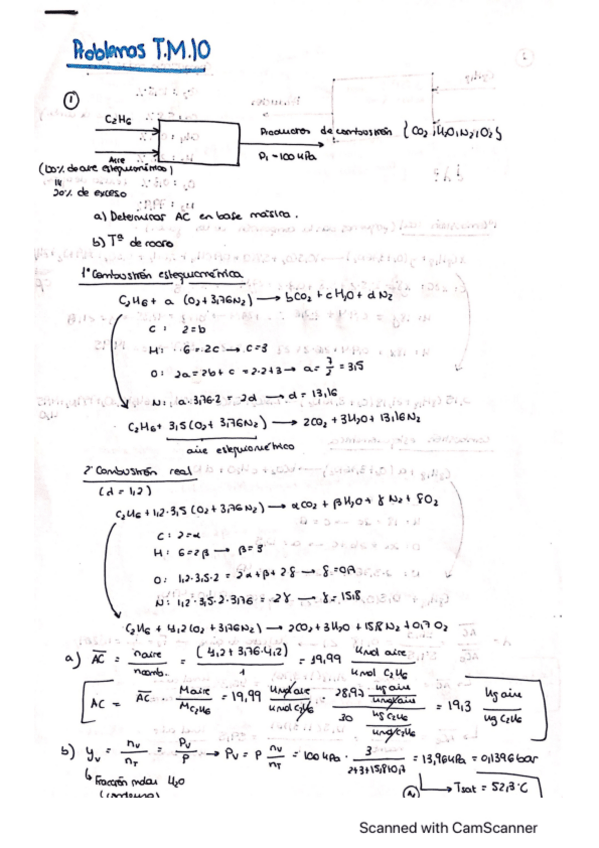 Problemas T.M.10
①
C2H6
Aire
Productos de combustión { CO2, H2O, N2, O2 }
P1 = 100 kPa
20% de exceso
a) Determinar AC en base másica.
b) Tª de rocío
1º Combustión estequiométrica
C2H6 + a (O2 + 3,76N2) → bCO2 + cH2O + dN2
C : 2 = b
H : 6 = 2c → c = 3
O : 2a = 2b + c = 2·2+3 → a = 7/2 = 3,5
N : a·3,76·2 = 2d → d = 13,16
C2H6 + 3,5 (O2 + 3,76N2) → 2CO2 + 3H2O + 13,16N2
aire estequiométrico
2º Combustión real
(d = 1,2)
C2H6 + 1,2·3,5 (O2 + 3,76N2) → αCO2 + βH2O + γN2 + δO2
C : 2 = α
H : 6 = 2β → β = 3
O : 1,2·3,5·2 = 2α + β + 2γ → γ = 0,7
N : 1,2·3,5·2·3,76 = 2γ → γ = 15,8
C2H6 + 4,2 (O2 + 3,76N2) → 2CO2 + 3H2O + 15,8N2 + 0,7O2
a) AC = naire/ncomb. = (4,2 + 3,76·4,2)/1 = 19,99 kmol aire/kmol C2H6
AC = AC · Maire/MC2H6 = 19,99 kmol aire/kmol C2H6 · 28,97 kg aire/kmol aire / 30 kg C2H6/kmol C2H6 = 19,3 kg aire/kg C2H6
b) yv = nv/nT = Pv/P → Pv = P nv/nT = 100 kPa · 3/2+3+15,8+0,7 = 13,96 kPa = 0,1396 bar
Fracción molar H2O
Tsat = 52,3ºC
Scanned with CamScanner